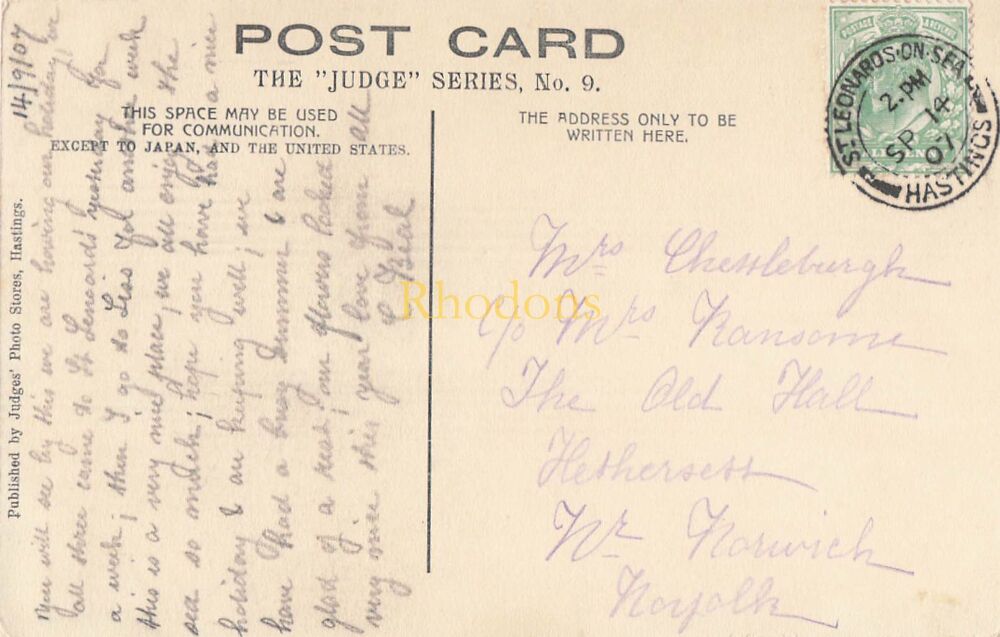 POST CARD
THE "JUDGE" SERIES, No. 9.
THIS SPACE MAY BE USED
FOR COMMUNICATION.
EXCEPT TO JAPAN, AND THE UNITED STATES.
THE ADDRESS ONLY TO BE
WRITTEN HERE.
POSTAGE
ST LEONARDS-ON-SEA
2. PM
SP 14
07
HASTINGS
Published by Judges' Photo Stores, Hastings.
14/9/07
You will see by this we are having our holiday! we
all three came to St Leonards yesterday for
a week; then I go to for another week
this is a very nice place, we all enjoy the
sea so much; hope you have had a nice
holiday & are keeping well; we
have had a busy summer & are
glad of a rest! our flowers looked
very nice this year love from all
Mrs Chessleburgh
c/o Mrs Ransome
The Old Hall
Hethersett
Nr Norwich
Norfolk
Rhodons